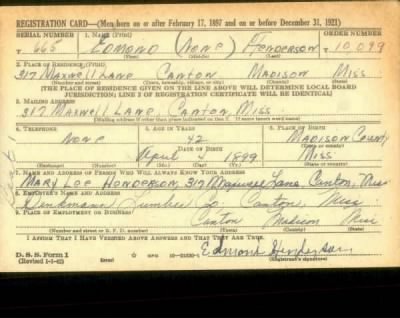 REGISTRATION CARD—(Men born on or after February 17, 1897 and on or before December 31, 1921)
SERIAL NUMBER 1. NAME (Print) ORDER NUMBER
T 665 EDMOND (NONE) HENDERSON 10,099
(First) (Middle) (Last)
2. PLACE OF RESIDENCE (Print)
317 MAXWELL LANE CANTON MADISON MISS
(Number and street) (Town, township, village, or city) (County) (State)
[THE PLACE OF RESIDENCE GIVEN ON THE LINE ABOVE WILL DETERMINE LOCAL BOARD
JURISDICTION; LINE 2 OF REGISTRATION CERTIFICATE WILL BE IDENTICAL]
3. MAILING ADDRESS
317 MAXWELL LANE CANTON MISS.
[Mailing address if other than place indicated on line 2. If same insert word same]
4. TELEPHONE 5. AGE IN YEARS 6. PLACE OF BIRTH
NONE 42 MADISON COUNTY
DATE OF BIRTH (Town or county)
April 4 1899 MISS
(Exchange) (Number) (Mo.) (Day) (Yr.) (State or country)
7. NAME AND ADDRESS OF PERSON WHO WILL ALWAYS KNOW YOUR ADDRESS
MARY LOE HENDERSON, 317 Maxwell Lane Canton, Miss
8. EMPLOYER'S NAME AND ADDRESS
Denkmann Lumber Co Canton, Miss
9. PLACE OF EMPLOYMENT OR BUSINESS
Canton Madison Miss
(Number and street or R. F. D. number) (Town) (County) (State)
I AFFIRM THAT I HAVE VERIFIED ABOVE ANSWERS AND THAT THEY ARE TRUE.
Edmond Henderson
D. S. S. Form 1 (Registrant's signature)
(Revised 1-1-42)